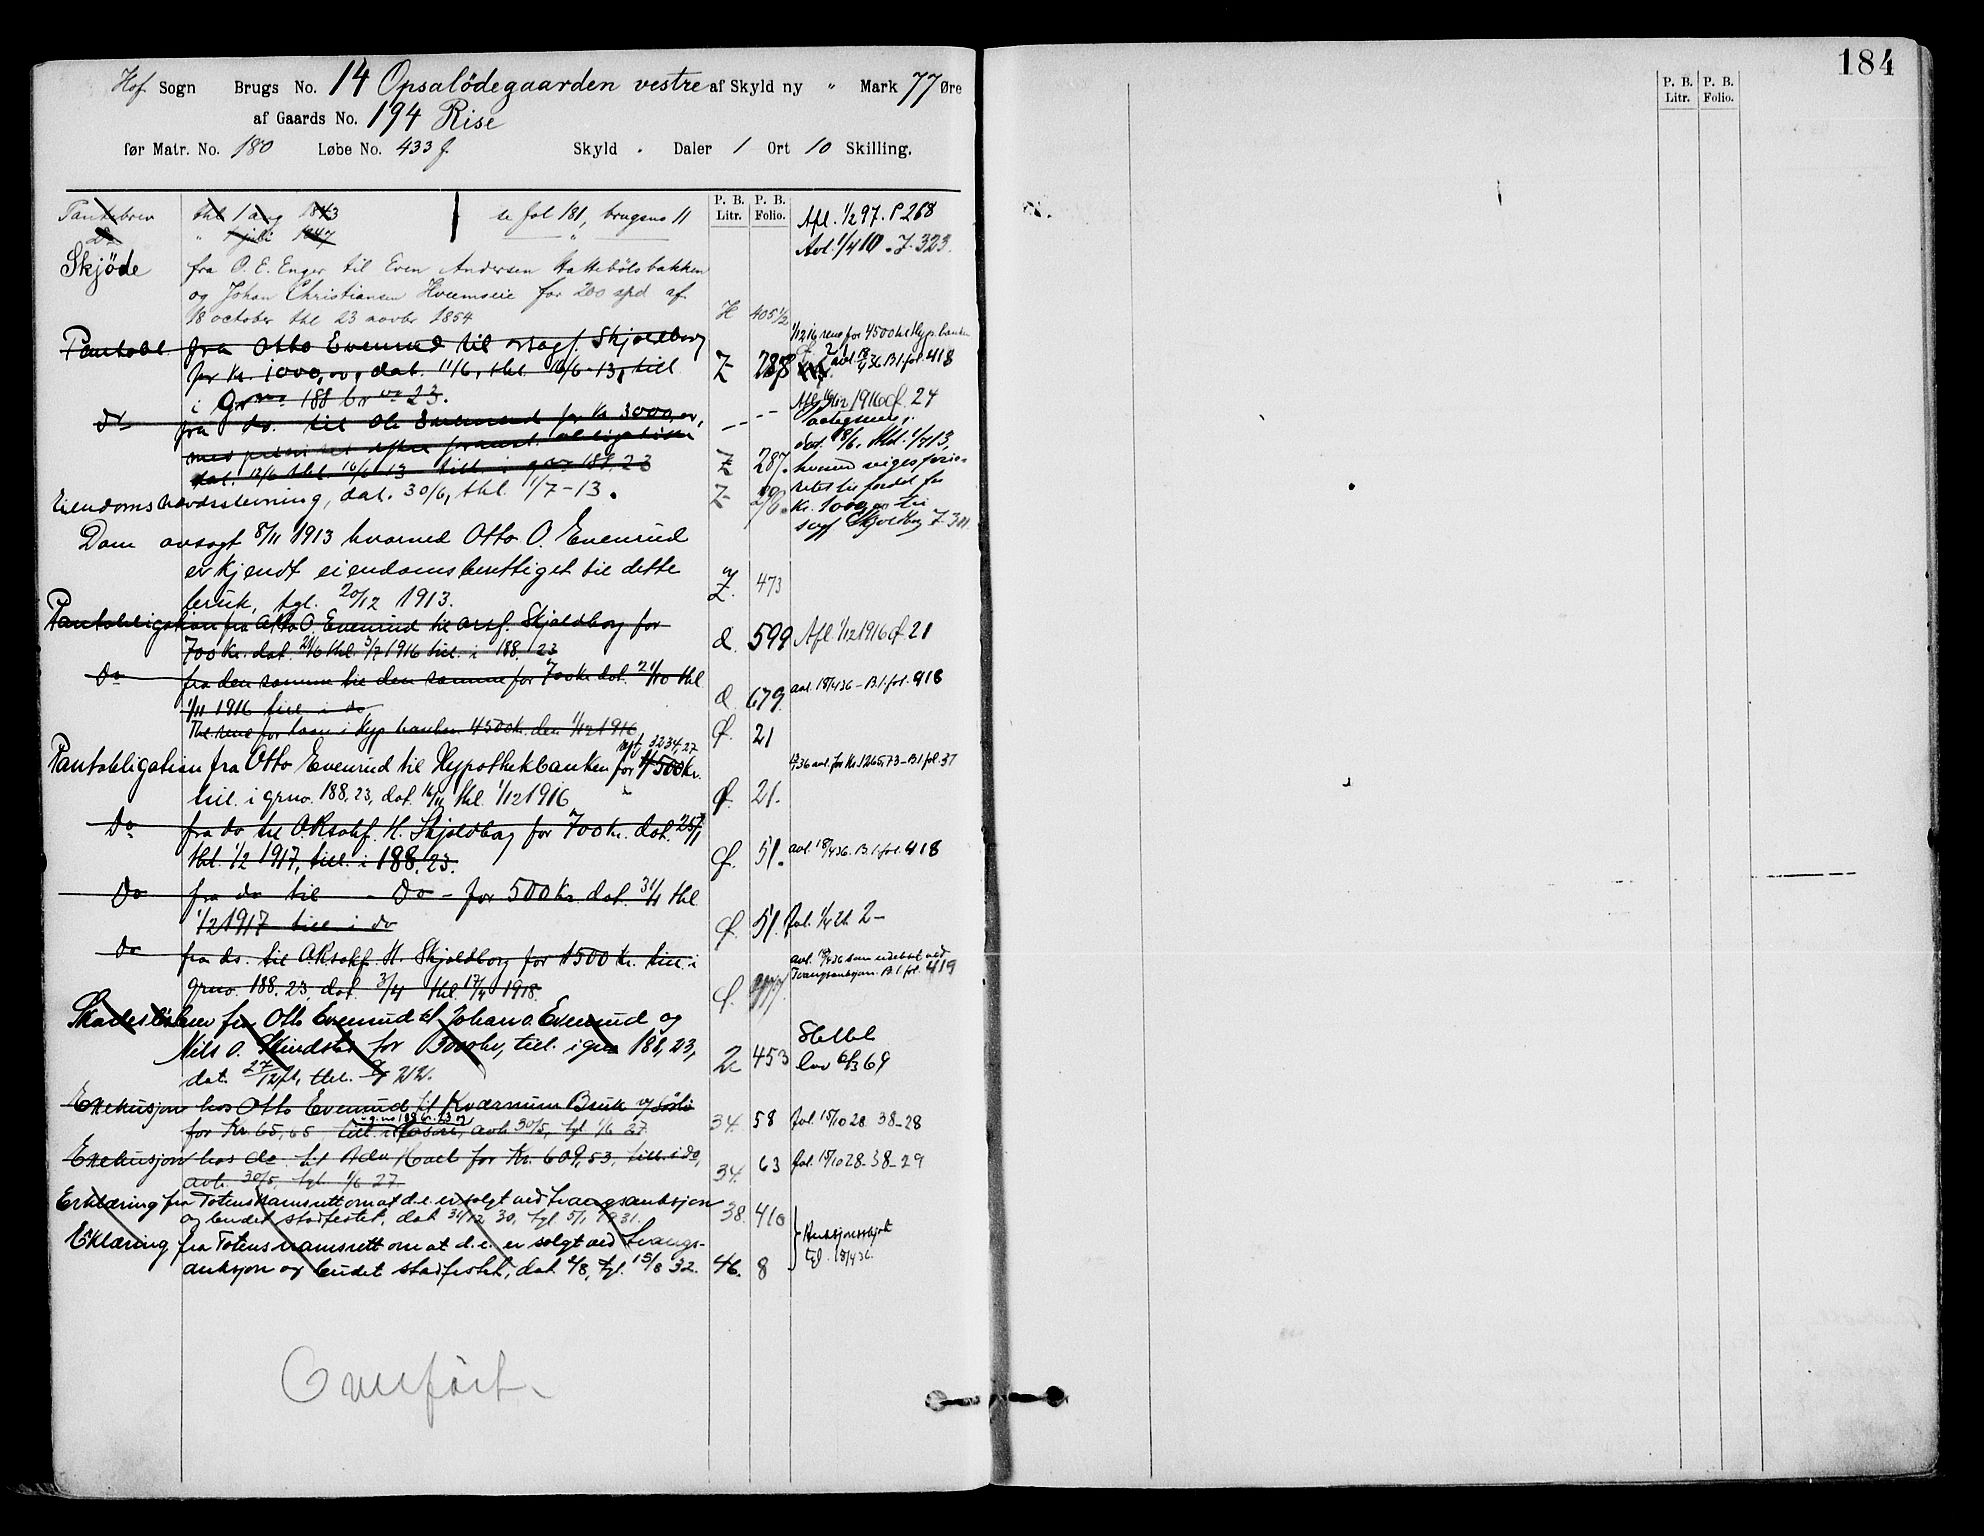 184
Hof Sogn Brugs No. 14 Opsalödegaarden vestre af Skyld ny " Mark 77 Øre
af Gaards No. 194 Rise
før Matr. No. 180 Løbe No. 433 f. Skyld . Daler 1 Ort 10 Skilling.
P. B. Litr. P. B. Folio.
P. B. Litr. P. B. Folio.
Pantebrev thl 1 aug 1843 se fol 181, brugsno 11 Afl. 1/2 97. P 268
Do " 1 juli 1847 " Avl. 1/4 10. Z. 323.
Skjöde fra O. E. Enger til Even Andersen
og Johan Christiansen Hveemseie for 200 spd af
18 october thl 23 novbr 1854 H 405 1/2
Pantobl fra Otto Evenrud til orsagf. Skjoldborg
for kr. 1000,00, dat. 11/6, thl. 16/6-13, till Z 288
i Grno 188 brno 23.
do fra do. til Ole Evenrud for kr 3000,00,
med prioritet efter foranst. obligation
dat. 12/6 thl. 16/6 13 till. i gno 188. 23 Z 287.
Eiendomshævdsstevning, dat. 30/6, thl. 1/7-13. Z
1/12 16 rene for 4500 thl Hyp. banken
avl. 18/4 36 B1. fol. 418
Afl. 1/12 1916 Q. 24
dat. 18/6, thl. 1/7 13,
hvorved viges prio-
ritet til fordel for
kr. 1000,00 til
sagf Skjoldborg Z. 311.
Dom avsagt 8/11 1913 hvorved Otto O. Evenrud
erkjendt eiendomsberettiget til dette
bruk, tgl. 20/12 1913. Z. 473
Pantobligation fra Otto O. Evenrud til orsf. Skjoldborg for
700 kr. dat. 29/6 thl. 3/7 1916 till. i 188. 23 d. 599 Afl. 1/12 1916 Q. 21
do fra den samme til den samme for 700 kr dat. 21/10 thl
1/11 1916 till. i do d. 679. avl. 18/4 36 - B1. fol. 418
Thl. rene for laan i Hyp banken 4500 kr. den 1/12 1916 Q. 21
rest 3234,27
Pantobligation fra Otto Evenrud til Hypothekbanken for 4500 kr.
till. i grno. 188. 23, dat. 16/11 thl. 1/12 1916 Q. 21. avl. for kr. 1265,73 - B1 fol. 37
Do fra do til O.Rsakf. H. Skjoldborg for 700 kr. dat. 25/1
thl 1/2 1917, till. i 188. 23. Q. 51. avl. 18/4 36. B1. fol. 418
Do fra do til - Do - for 500 kr. dat. 31/1 thl
1/2 1917 till. i do Q. 51.
do fra do. til O.Rsakf. H. Skjoldborg for 1500 kr. till. i
grno. 188. 23, dat. 3/4 thl. 17/4 1918. Q. avl. 18/4 36 som udebet. ved
Tvangsauksjon. B1 fol. 419
Skadeslösbrev fra Otto Evenrud til Johan O. Evenrud og
Nils O. for 3000 kr, till. i gno 188, 23,
dat. 27/12 21, thl. 22. 2c 453 Slettet
lov 69
Eksekusjon hos Otto Evenrud til Kværnum Bruk
for Kr. 65,65, till. i gno 188 br. 23 og løsöre, avh. 30/5, tgl 1/6 27 34. 58 fol. 15/10 28 38-28
Eksekusjon hos do. til Adv. for Kr. 609,53, till. i do,
avh. 30/5, tgl. 1/6 27. 34. 63 fol. 15/10 28 38-29
Erklæring fra Totens namsrett om at d. e. er solgt ved tvangsauksjon
og budet stadfestet, dat 31/12 30, tgl 5/1 1931. 38. 410
Erklæring fra Totens namsrett om at d. e. er solgt ved tvangs-
auksjon og budet stadfestet, dat. 4/8, tgl. 15/8 32. 46. 8
Auksjonsskjöte
tgl. 18/4 36.
Overfört.